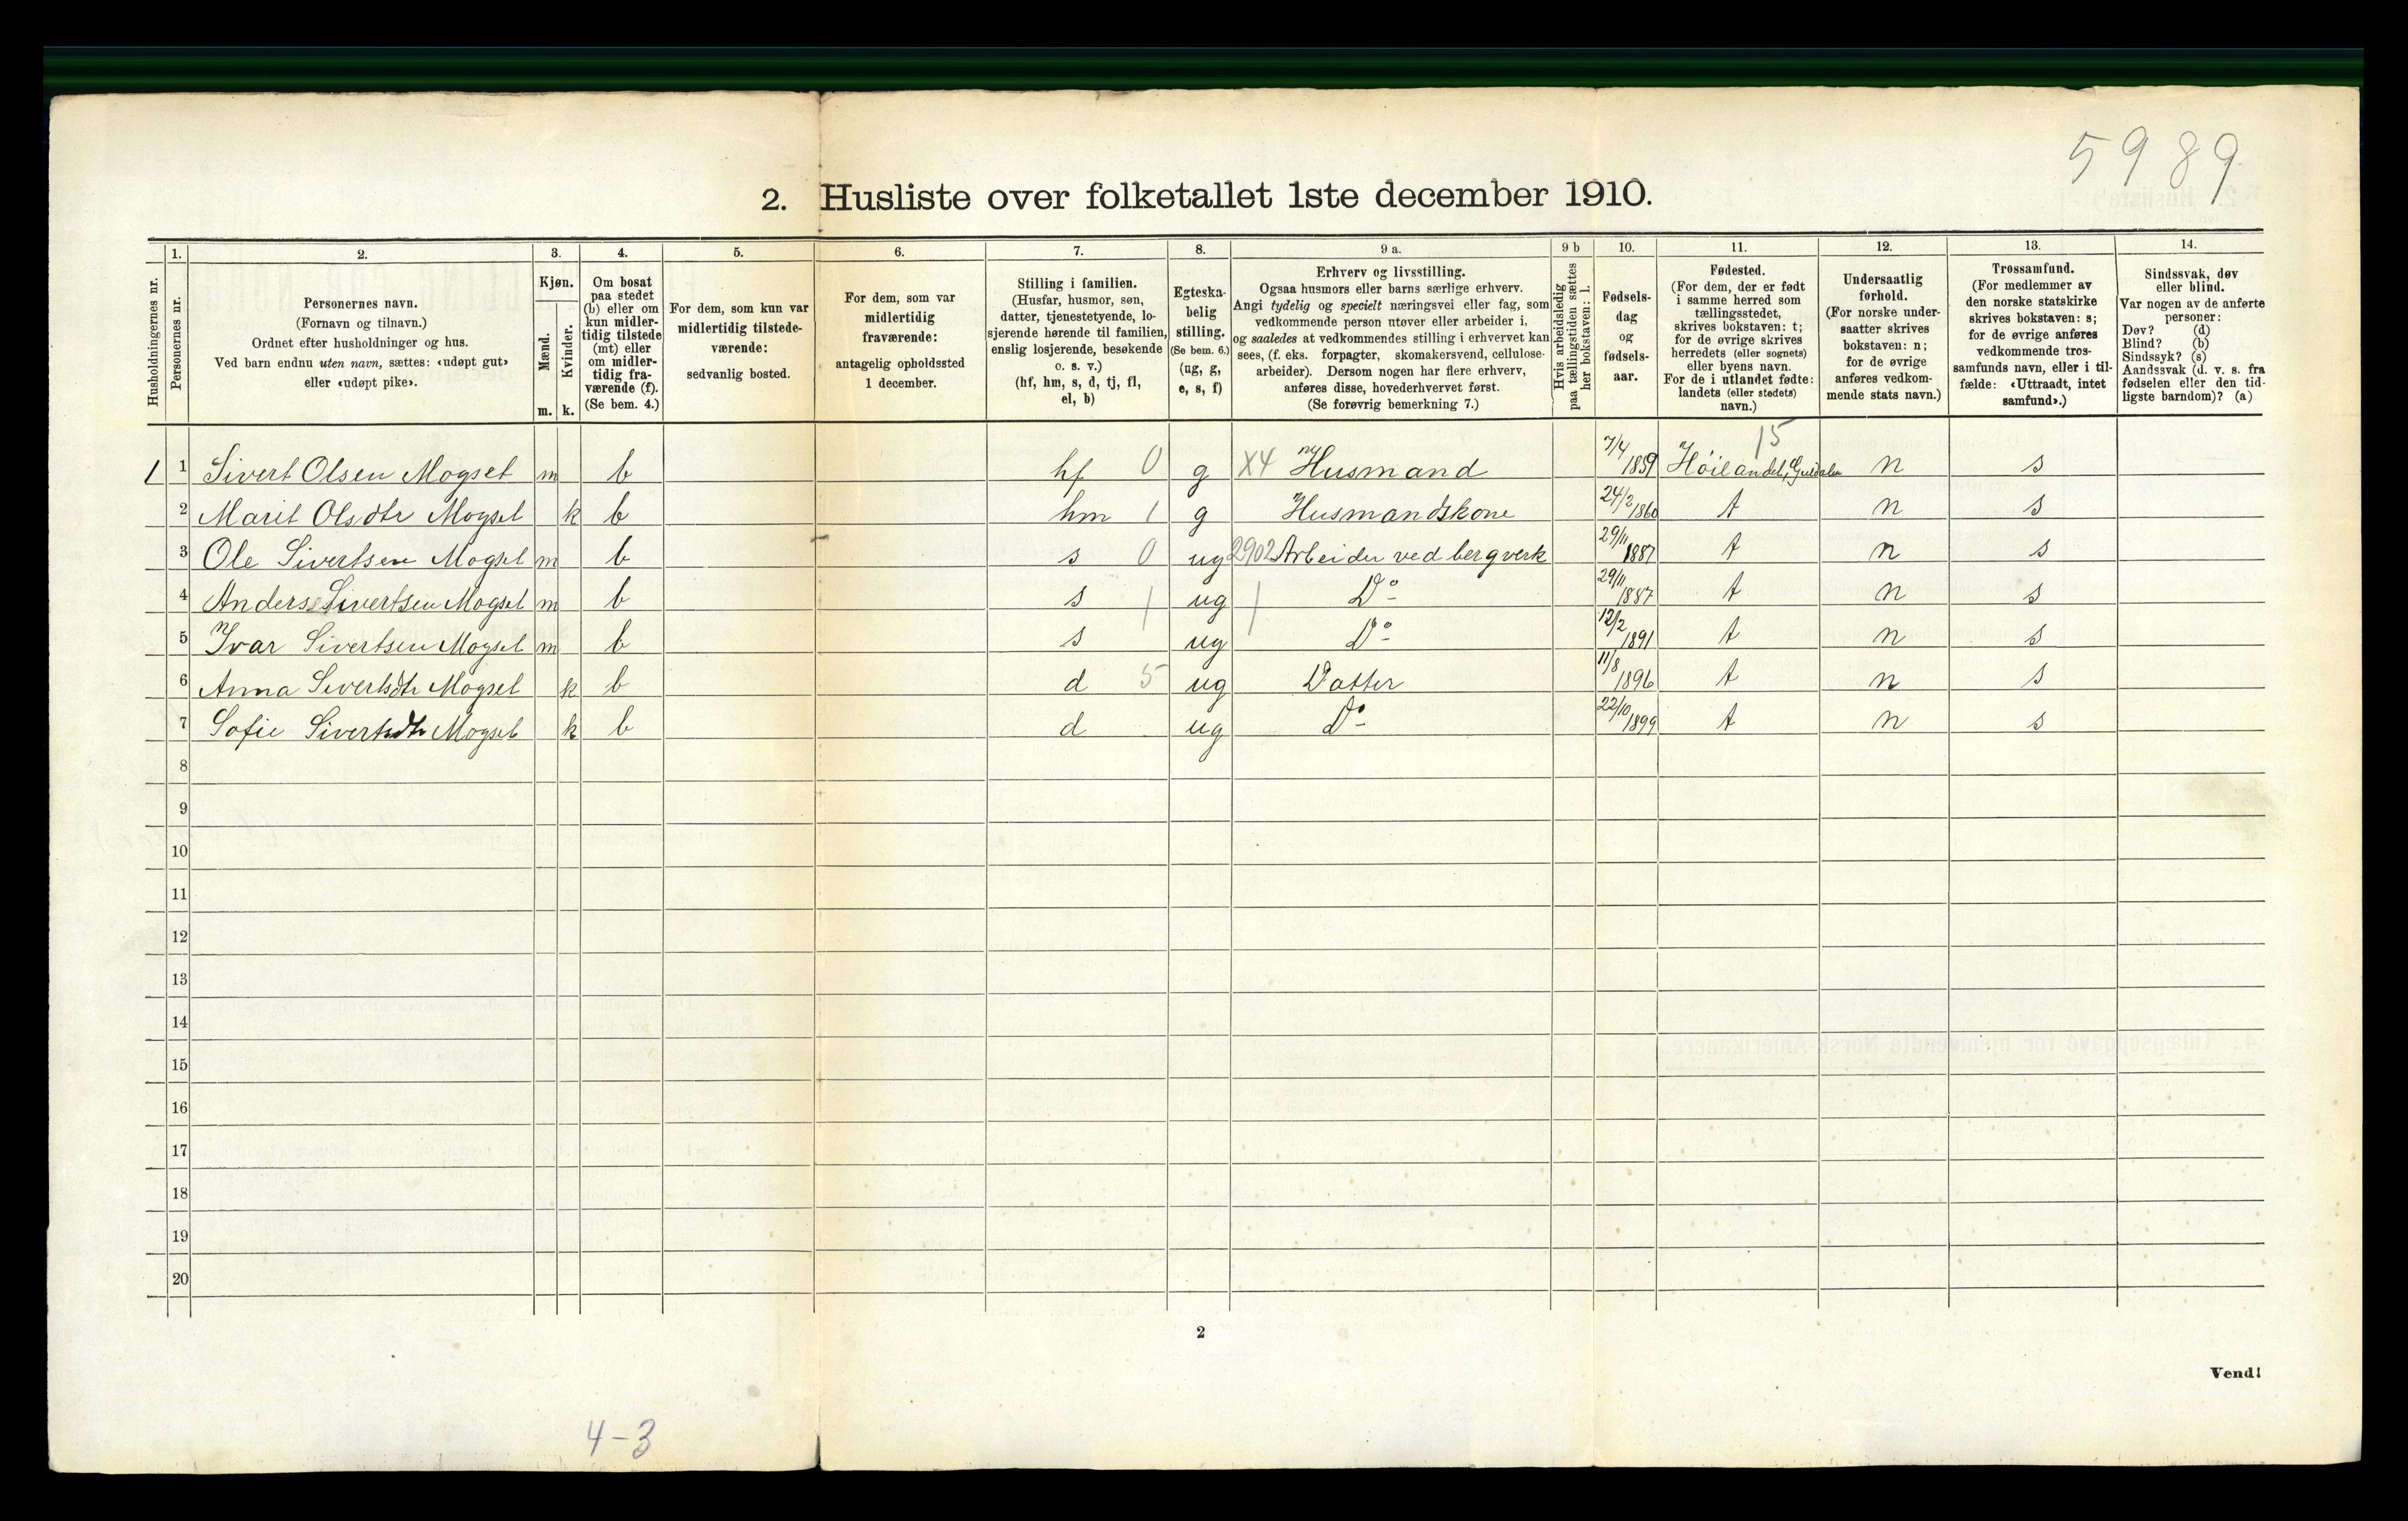 5989
2. Husliste over folketallet 1ste december 1910.
Husholdningernes nr.
1.
Personernes nr.
2.
Personernes navn.
(Fornavn og tilnavn.)
Ordnet efter husholdninger og hus.
Ved barn endnu uten navn, sættes: «udøpt gut»
eller «udøpt pike».
3.
Kjøn.
Mænd.
Kvinder.
m. k.
4.
Om bosat
paa stedet
(b) eller om
kun midler-
tidig tilstede
(mt) eller
om midler-
tidig fra-
værende (f).
(Se bem. 4.)
5.
For dem, som kun var
midlertidig tilstede-
værende:
sedvanlig bosted.
6.
For dem, som var
midlertidig
fraværende:
antagelig opholdssted
1 december.
7.
Stilling i familien.
(Husfar, husmor, søn,
datter, tjenestetyende, lo-
sjerende hørende til familien,
enslig losjerende, besøkende
o. s. v.)
(hf, hm, s, d, tj, fl,
el, b)
8.
Egteska-
belig
stilling.
(Se bem. 6.)
(ug, g,
e, s, f)
9 a.
Erhverv og livsstilling.
Ogsaa husmors eller barns særlige erhverv.
Angi tydelig og specielt næringsvei eller fag, som
vedkommende person utøver eller arbeider i,
og saaledes at vedkommendes stilling i erhvervet kan
sees, (f. eks. forpagter, skomakersvend, cellulose-
arbeider). Dersom nogen har flere erhverv,
anføres disse, hovederhvervet først.
(Se forøvrig bemerkning 7.)
9 b
Hvis arbeidsledig
paa tællingstiden sættes
her bokstaven: l.
10.
Fødsels-
dag
og
fødsels-
aar.
11.
Fødested.
(For dem, der er født
i samme herred som
tællingsstedet,
skrives bokstaven: t;
for de øvrige skrives
herredets (eller sognets)
eller byens navn.
For de i utlandet fødte:
landets (eller stedets)
navn.)
12.
Undersaatlig
forhold.
(For norske under-
saatter skrives
bokstaven: n;
for de øvrige
anføres vedkom-
mende stats navn.)
13.
Trossamfund.
(For medlemmer av
den norske statskirke
skrives bokstaven: s;
for de øvrige anføres
vedkommende tros-
samfunds navn, eller i til-
fælde: «Uttraadt, intet
samfund».)
14.
Sindssvak, døv
eller blind.
Var nogen av de anførte
personer:
Døv? (d)
Blind? (b)
Sindssyk? (s)
Aandssvak (d. v. s. fra
fødselen eller den tid-
ligste barndom)? (a)
15
1 1 Sivert Olsen Mogset m b hf 0 g X4 Husmand 7/4 1859 Høilandet, n s
2 Marit Olsdtr Mogset k b hm 1 g Husmandskone 24/2 1860 t n s
3 Ole Sivertsen Mogset m b s 0 ug 2902 Arbeider ved bergverk 29/11 1887 t n s
4 Anders Sivertsen Mogset m b s 1 ug 1 Do 29/11 1887 t n s
5 Ivar Sivertsen Mogset m b s ug Do 12/2 1891 t n s
6 Anna Sivertsdtr Mogset k b d 5 ug Datter 11/8 1896 t n s
7 Sofie Sivertsdtr Mogset k b d ug Do 22/10 1899 t n s
8
9
10
11
12
13
14
15
16
17
18
19
20
2
Vend!
4-3